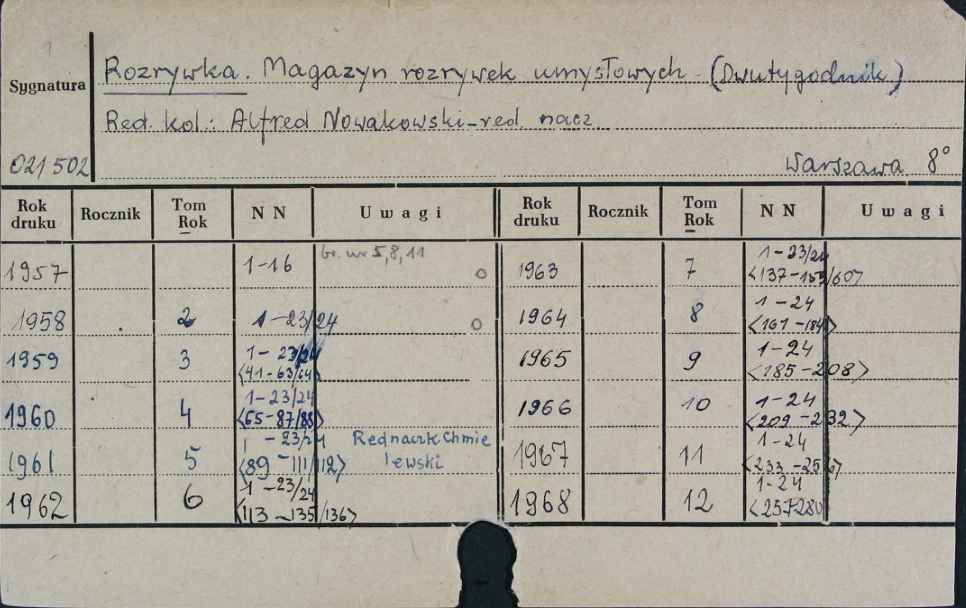 Rozrywka. Magazyn rozrywek umysłowych (Dwutygodnik)
Sygnatura
Red. kol.: Alfred Nowakowski-red. nacz.
021502 Warszawa 8°
Rok druku Rocznik Tom Rok NN Uwagi Rok druku Rocznik Tom Rok NN Uwagi
1957 1-16 br. nr 5,8,11 1963 7 1-23/24 <137-159/60>
1958 2 1-23/24 1964 8 1-24 <161-184>
1959 3 1-23/24 <41-63/64> 1965 9 1-24 <185-208>
1960 4 1-23/24 <65-87/88> 1966 10 1-24 <209-232>
1961 5 1-23/24 <89-111/112> Red nacz K Chmielewski 1967 11 1-24 <233-256>
1962 6 1-23/24 <113-135/136> 1968 12 1-24 <257-280>